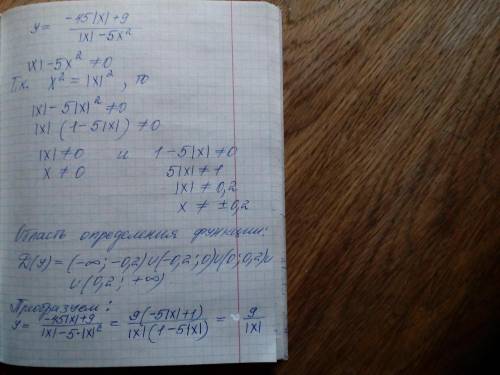 y = (-45|x|+9)/(|x|-5x²)
|x|-5x² ≠0
Т.к. x² = |x|², то
|x|-5|x|² ≠0
|x| (1-5|x|) ≠0
|x| ≠0 и 1-5|x| ≠0
x ≠ 0 5|x| ≠1
|x| ≠0,2
x ≠ ±0,2
Область определения функции:
D(y) = (-∞; -0,2)∪(-0,2; 0)∪(0; 0,2)∪
∪(0,2; +∞)
Преобразуем:
y = (-45|x|+9)/(|x|-5·|x|²) = 9(-5|x|+1)/(|x|(1-5|x|)) = 9/|x|